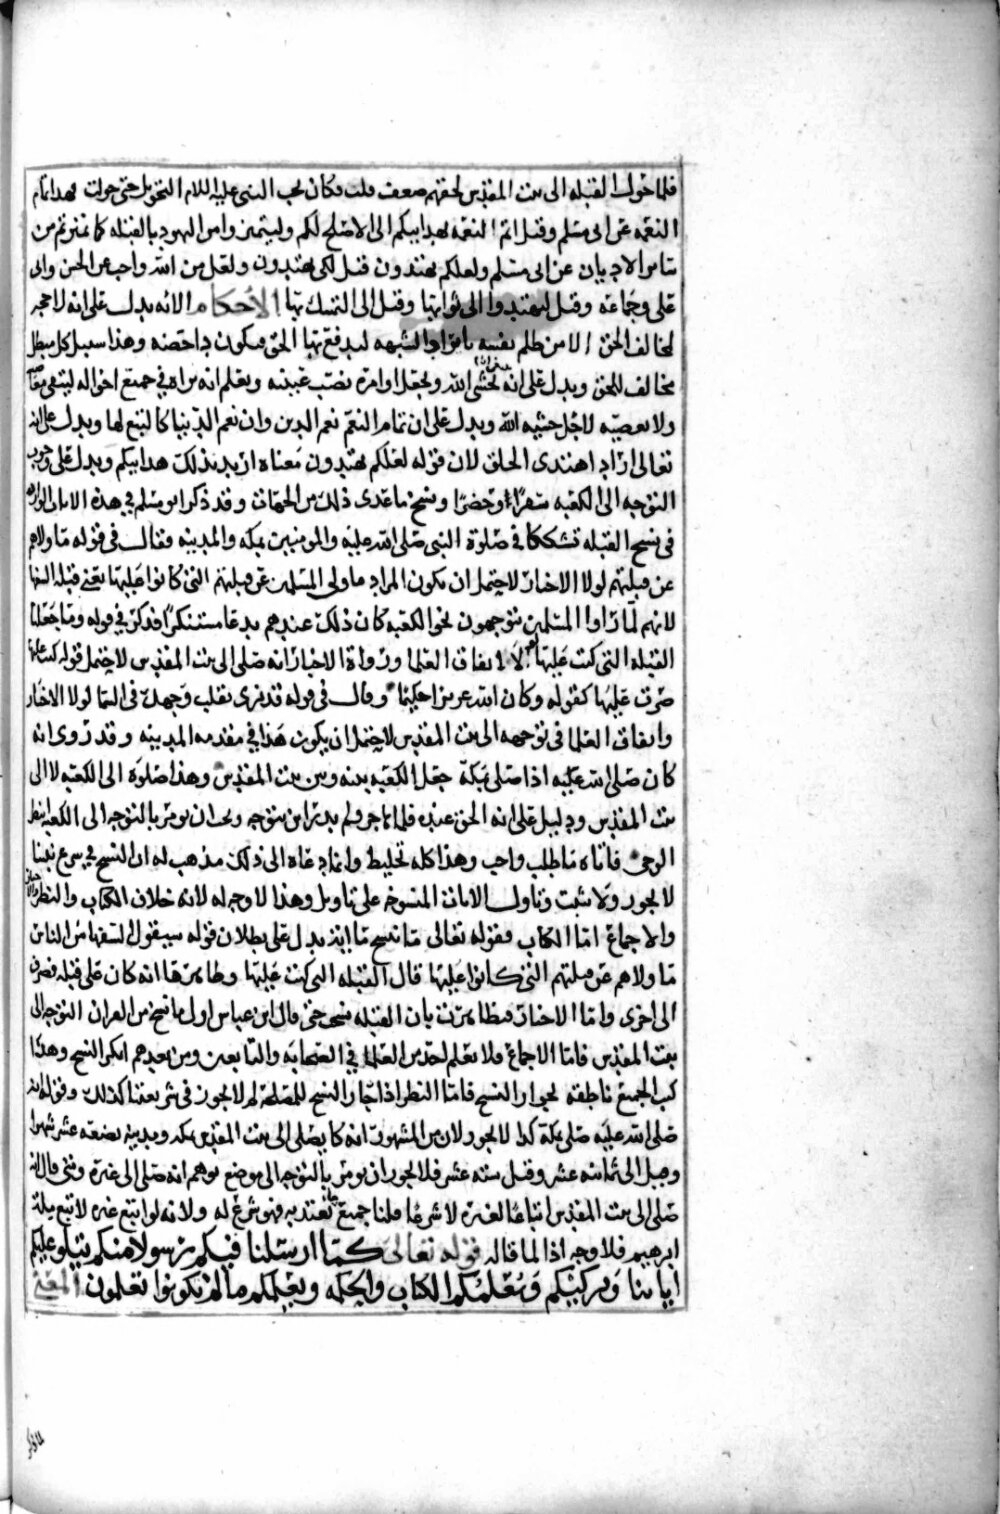 فلما حولت القبله الى بيت المقدس لحقهم ضعف قلب فكان يحب النبى عليه السلام التحويل حتى حولت فهذا تمام
النعمه عن ابى مسلم وقيل اتم النعمه بهدايتكم الى الاصلح لكم وليتميزوا من اليهود بالقبله كما تميزتم من
سائر الاديان عن ابى مسلم ولعلكم تهتدون قيل لكى تهتدون ولعل من الله واجب عن الحسن وابى
على وجماعه وقيل ليهتدوا الى ثوابها وقيل الى التمسك بها الاحكام الايه يدل على انه لا حجه
لمخالف الحق الا من ظلم نفسه بايراد الشبهه ليدفع بها الحق فيكون داحضه وهذا سبيل كل مبطل
مخالف للحق ويدل على انه يخشى الله ويجعل اوامره نصب عينيه ويعلم انه يراه فى جميع احواله
ولا يعصيه لاجل خشيه الله ويدل على ان تمام النعم نعم الدين وان نعم الدنيا كالتبع لها ويدل على انه
تعالى اراد اهتدى الخلق لان قوله لعلكم تهتدون معناه اريد بذلك هدايتكم ويدل على وجوب
التوجه الى الكعبه سفرا وحضرا ونسخ ما عدى ذلك من الجهات وقد ذكر ابو مسلم فى هذه الايات الوارده
فى نسخ القبله تشككا فى صلوة النبى صلى الله عليه والمومنين بمكه والمدينه فقال فى قوله ما ولاهم
عن قبلتهم لولا الاخبار لاحتمل ان يكون المراد ما ولى المسلمين عن قبلتهم التى كانوا عليها يعنى قبله السفها
لانهم لما راوا المسلمين يتوجهون نحو الكعبه كان ذلك عندهم بدعا مستنكرا فذكر فى قوله وما جعلنا
القبله التى كنت عليها لولا اتفاق العلما ورواة الاخبار انه صلى الى بيت المقدس لاحتمل قوله كنت عليها
صرت عليها كقوله وكان الله عزيزا حكيما وقال فى قوله قد نرى تقلب وجهك فى السما لولا الاخبار
واتفاق العلما فى توجهه الى بيت المقدس لاحتمل ان يكون هذا فى مقدمه المدينه وقد روى انه
كان صلى الله عليه اذا صلى بمكة جعل الكعبه بينه وبين بيت المقدس وهذا صلوة الى الكعبه لا الى
بيت المقدس ودليل على انه الحق عنده فلما هاجر ولم يدر اين يتوجه وبحب ان يومر بالتوجه الى الكعبه انتظر
الوحى فاتاه ما طلب واحب وهذا كله تخليط وانما دعاه الى ذلك مذهب له ان النسخ فى شرع نبينا
لا يجوز ولا يثبت وتناول الايات المنسوخه على تاويل وهذا لا وجه له لانه خلاف الكتاب والنظر والاخبار
والاجماع اما الكتاب فقوله تعالى ما ننسخ من ايه يدل على بطلان قوله سيقول السفها من الناس
ما ولاهم عن قبلتهم التى كانوا عليها قال القبله التى كنت عليها وظاهرها انه كان على قبله فصرف
الى اخرى واما الاخبار فتظاهرت بان القبله نسخ حتى قال ابن عباس اول ما نسخ من القران التوجه الى
بيت المقدس فاما الاجماع فلا نعلم احد من العلما فى الصحابه والتابعين ومن بعدهم انكر النسخ وهذا
كتب الجميع ناطقه بجواز النسخ فاما النظر اذا جاز النسخ للمصلحه لم لا يجوز فى شريعتنا كذلك وقوله انه
صلى الله عليه صلى بمكة كذا لا يجوز لان من المشهور انه كان يصلى الى بيت المقدس بمكه وبمدينه بضعه عشر شهرا
وقيل الى ثمانيه عشر وقيل سته عشر فلا يجوز ان يومر بالتوجه الى موضع يوهم انه صلى الى غيره ومتى قال انه
صلى الى بيت المقدس اتباعا لغيره لا شرعا قلنا جميع ما تعتد به فهو شرع له ولانه لو اتبع غيره لاتبع ملة
ابرهيم فلا وجه اذا لما قاله قوله تعالى كما ارسلنا فيكم رسولا منكم يتلو عليكم
اياتنا ويزكيكم ويعلمكم الكتاب والحكمه ويعلمكم ما لم تكونوا تعلمون المعنى